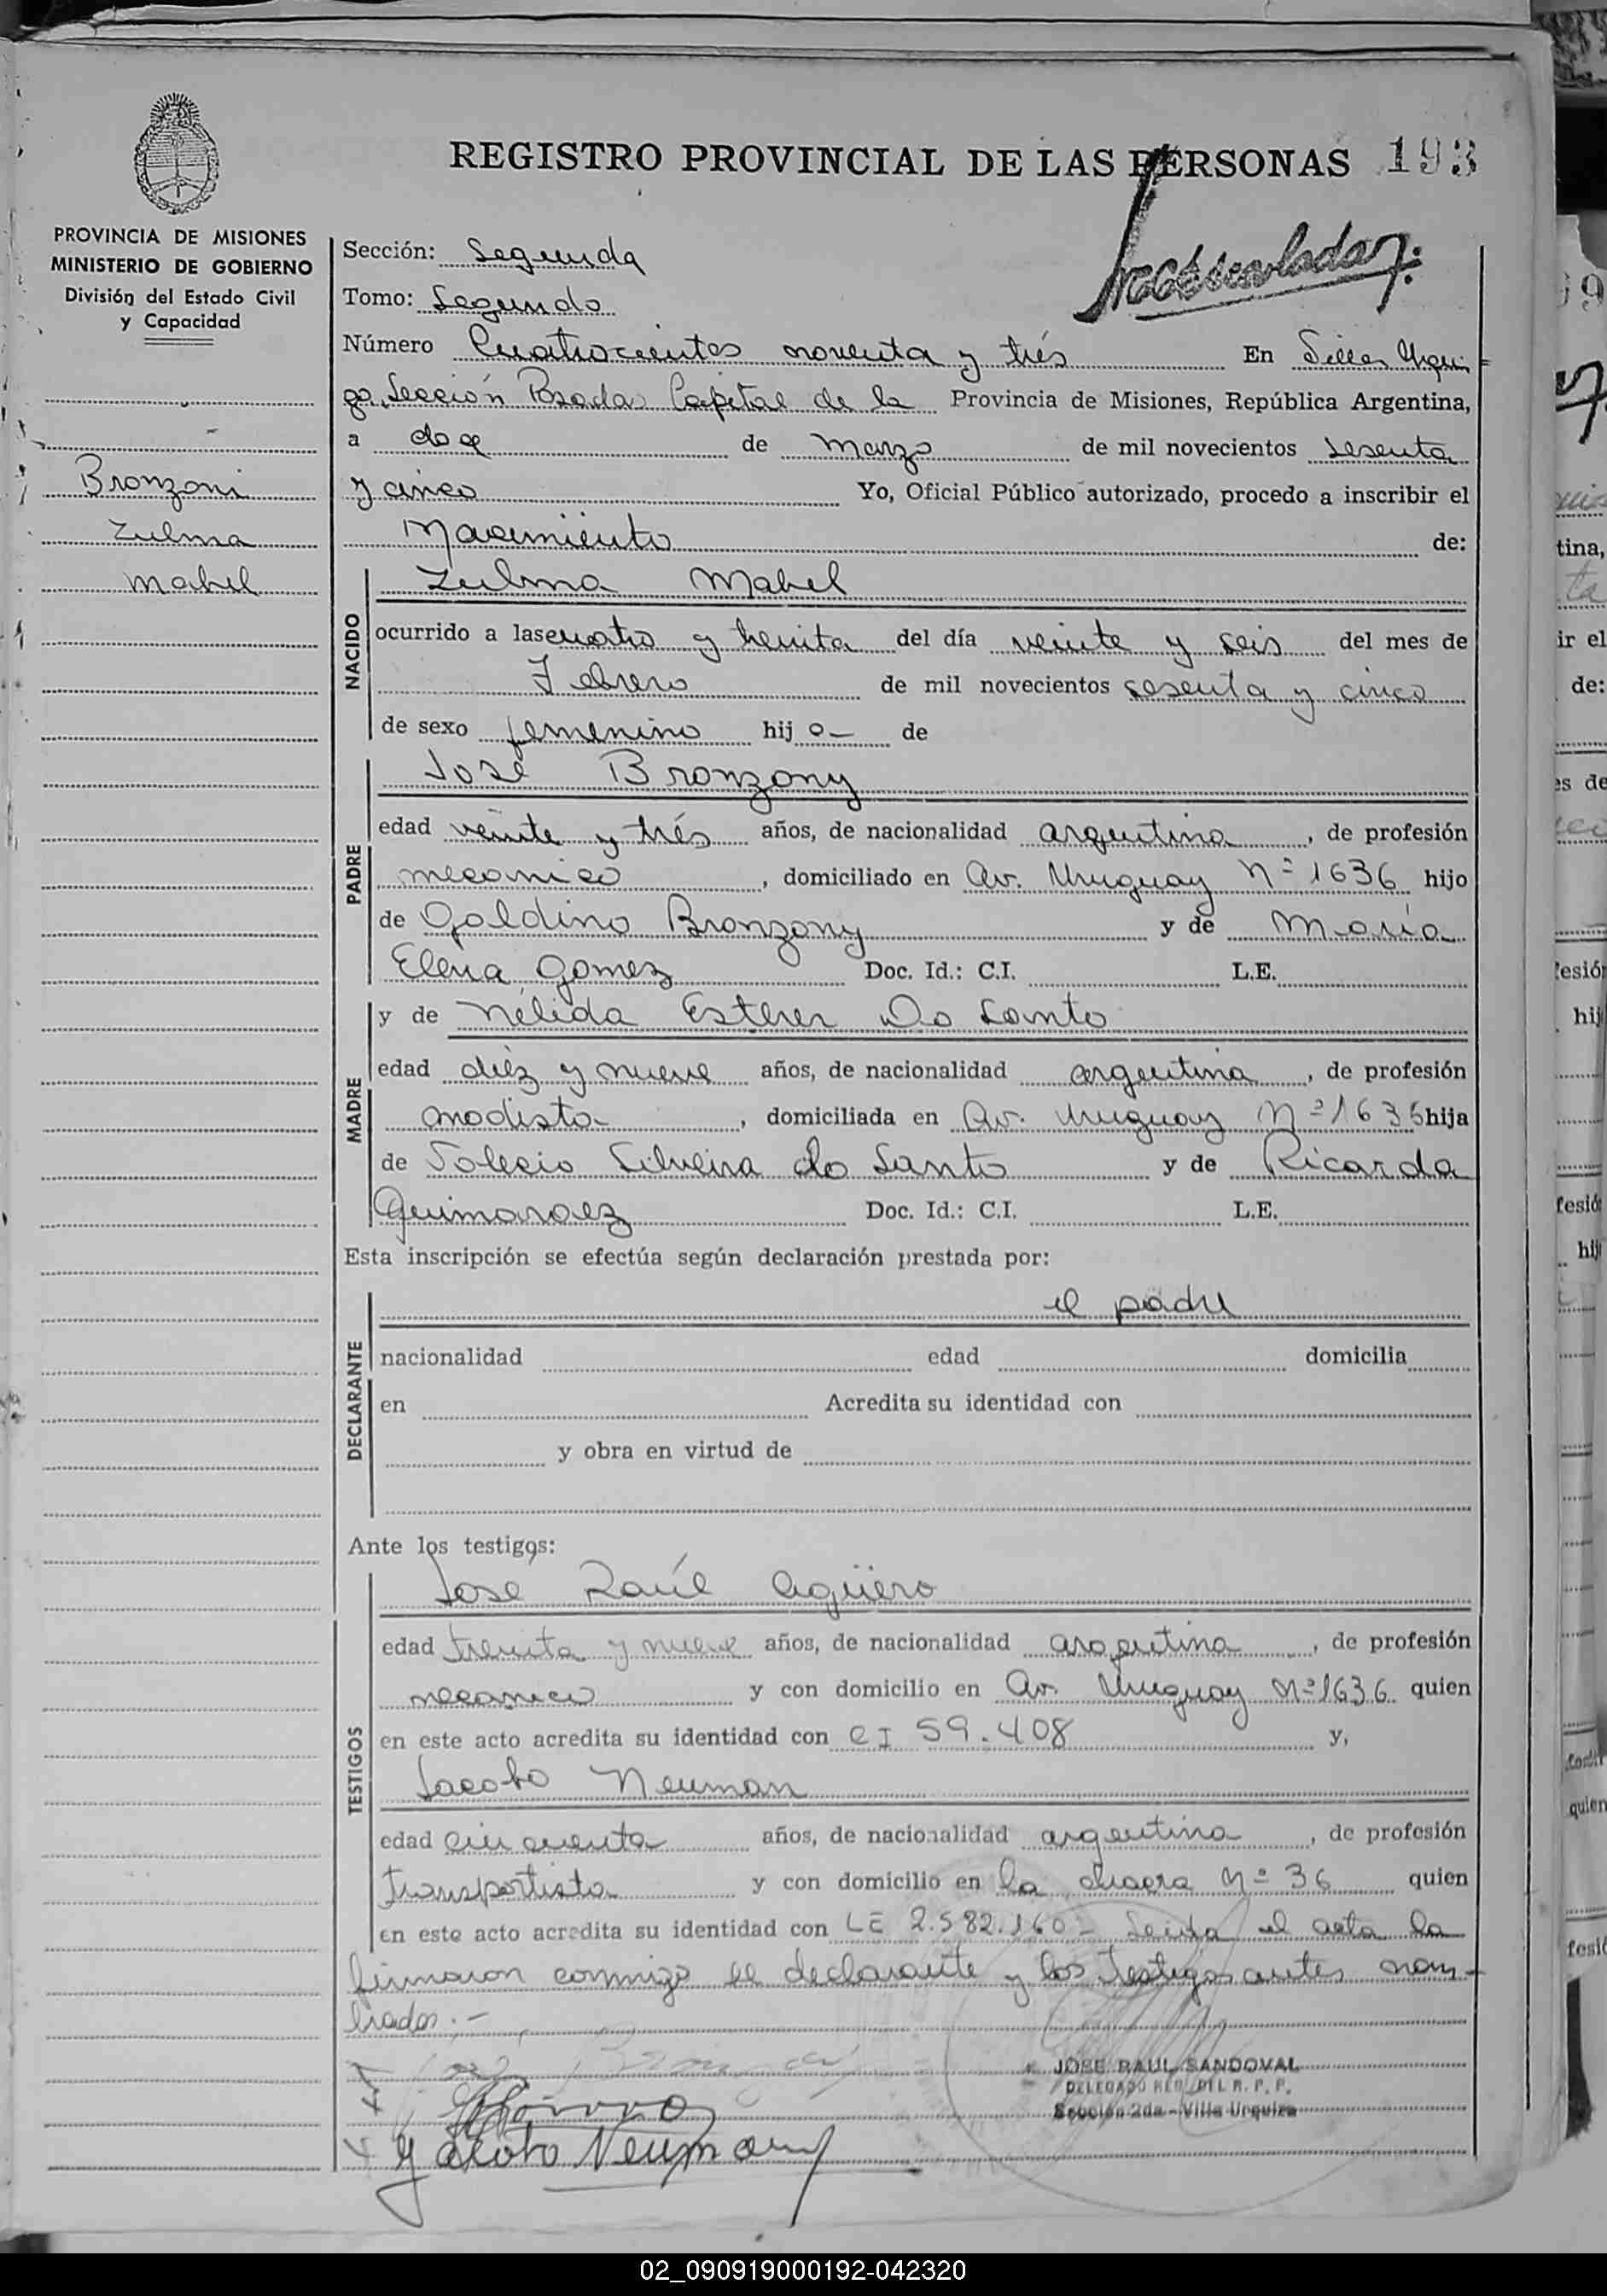 REGISTRO PROVINCIAL DE LAS PERSONAS 193
PROVINCIA DE MISIONES
MINISTERIO DE GOBIERNO
División del Estado Civil
y Capacidad
Bronzoni
Zulma
Mabel
Sección: Segunda
Tomo: Segundo
Número Cuatrocientos noventa y trés En Villa Urqui
za, Sección Posadas Capital de la Provincia de Misiones, República Argentina,
a doce de Marzo de mil novecientos sesenta
y cinco Yo, Oficial Público autorizado, procedo a inscribir el
Nacimiento de:
NACIDO
Zulma Mabel
ocurrido a las cuatro y treinta del día veinte y seis del mes de
Febrero de mil novecientos sesenta y cinco
de sexo femenino hij a- de
PADRE
José Bronzony
edad veinte y trés años, de nacionalidad argentina, de profesión
mecanico, domiciliado en Av. Uruguay Nº 1636 hijo
de Galdino Bronzony y de Maria
Elena Gomez Doc. Id.: C.I. L.E.
MADRE
y de Nélida Esther Do Santo
edad diéz y nueve años, de nacionalidad argentina, de profesión
modista, domiciliada en Av. Uruguay Nº 1635 hija
de Silveira do Santo y de Ricarda
Guimaraez Doc. Id.: C.I. L.E.
Esta inscripción se efectúa según declaración prestada por:
DECLARANTE
el padre
nacionalidad edad domicilia
en Acredita su identidad con
y obra en virtud de
Ante los testigos:
TESTIGOS
José Raúl Agüero
edad treinta y nueve años, de nacionalidad argentina, de profesión
mecanico y con domicilio en Av. Uruguay Nº 1636 quien
en este acto acredita su identidad con CI 59.408 y,
Jacobo Neuman
edad cincuenta años, de nacionalidad argentina, de profesión
transportista y con domicilio en la chacra Nº 36 quien
en este acto acredita su identidad con LE 2.582.160- Leida el acta la
firmaron conmigo el declarante y los testigos antes nom-
brados.-
JOSE RAUL SANDOVAL
DELEGADO REG. DEL R. P. P.
Sección 2da - Villa Urquiza
Yacobo Neuman
02_090919000192-042320